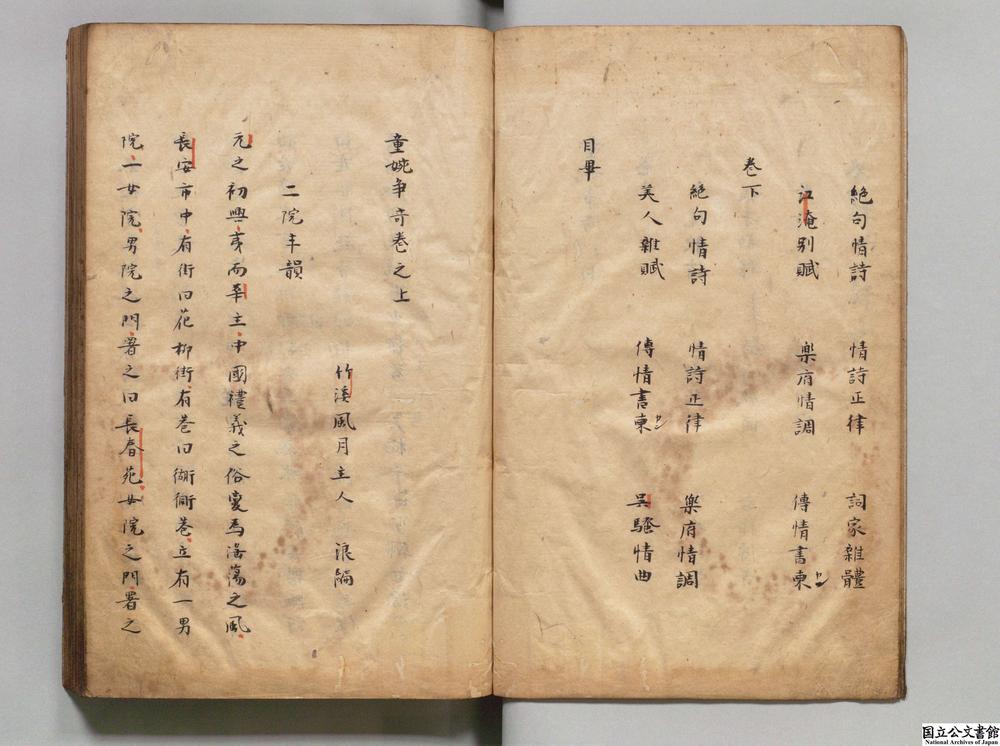 絶句情詩　情詩正律　詞家雜體
江淹別賦　樂府情調　傳情書柬
卷下
絕句情詩　情詩正律　樂府情調
美人雜賦　傳情書柬　吳騷情曲
目畢
童婉爭奇卷之上
竹溪風月主人　浪編
二院丰韻
元之初興夷而華主中國禮義之俗變為淫蕩之風
長安市中有街曰花柳街有巷曰衚衕巷立有一男
院一女院男院之門署之曰長春苑女院之門署之
国立公文書館
National Archives of Japan